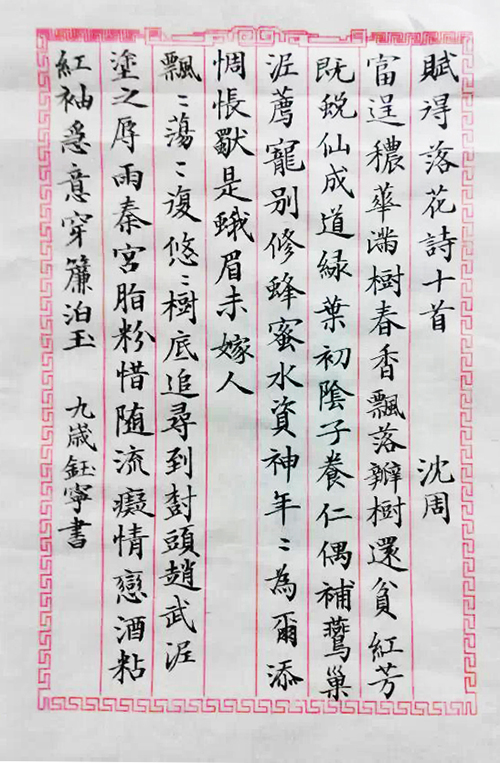 賦得落花詩十首 沈周
富逞穠華滿樹春香飄落瓣樹還貧紅芳
既蛻仙成道綠葉初陰子養仁偶補鷰巢
泥薦寵別修蜂蜜水資神年〻為爾添
惆悵獸是蛾眉未嫁人
飄〻蕩〻復悠〻樹底追尋到尌頭趙武泥
塗之辱雨秦宮脂粉惜随流癡情戀酒粘
紅袖急意穿簾泊玉 九歲鈺寧書